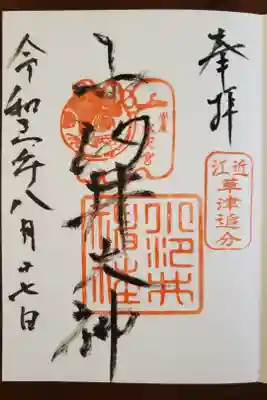 奉拝
近江
草津追分
小汐井大神
小汐井神社
令和 年八月 七日